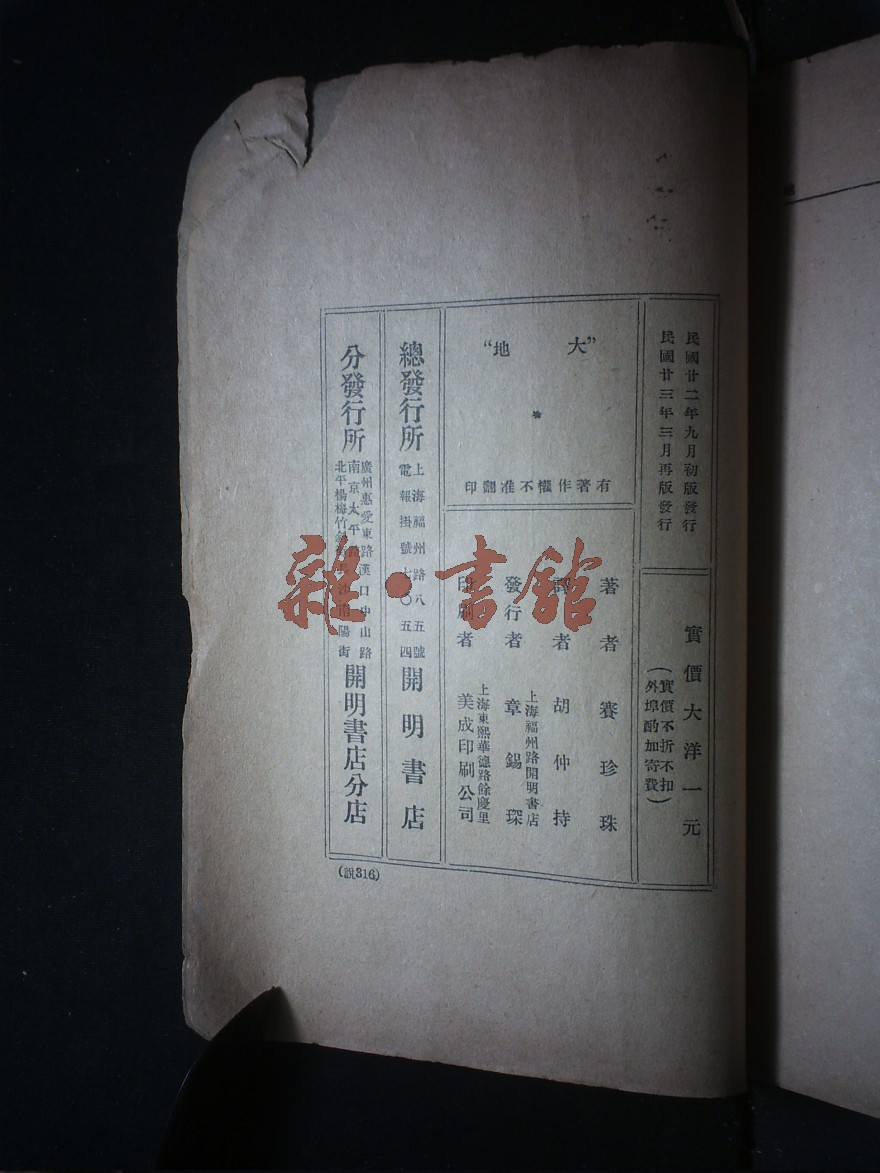 民國廿二年九月初版發行
民國廿三年三月再版發行
實價大洋一元
(實價不折不扣
外埠酌加寄費)
"大地"
有著作權不准翻印
著者 賽珍珠
譯者 胡仲持
發行者 章錫琛
上海福州路開明書店
印刷者 美成印刷公司
上海東熙華德路餘慶里
總發行所 上海福州路八五號 開明書店
電報掛號七〇五四
分發行所 廣州惠愛東路漢口中山路 開明書店分店
南京太平路
北平楊梅竹斜 長沙南陽街
(說316)
雜·書館